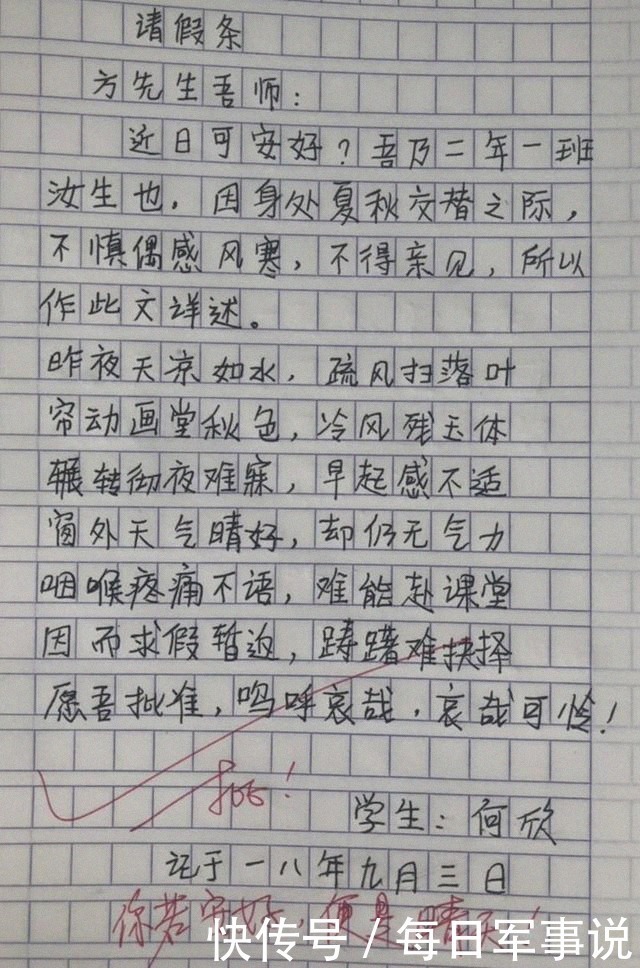 请假条
方先生吾师：
近日可安好？吾乃二年一班
汝生也，因身处夏秋交替之际，
不慎偶感风寒，不得亲见，所以
作此文详述。
昨夜天凉如水，疏风扫落叶
帘动画堂秋色，冷风残玉体
辗转彻夜难寐，早起感不适
窗外天气晴好，却仍无气力
咽喉疼痛不语，难能赴课堂
因而求假暂返，踌躇难抉择
愿吾批准，呜呼哀哉，哀哉可怜！
批！
学生：何欣
记于一八年九月三日
你若安好，便是晴天！
快传号／每日军事说